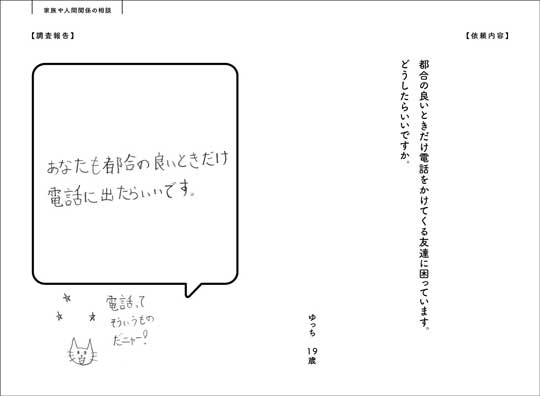 家族や人間関係の相談
【依頼内容】
都合の良いときだけ電話をかけてくる友達に困っています。
どうしたらいいですか。
ゆっち 19歳
【調査報告】
あなたも都合の良いときだけ
電話に出たらいいです。
電話って
そういうもの
だニャー!